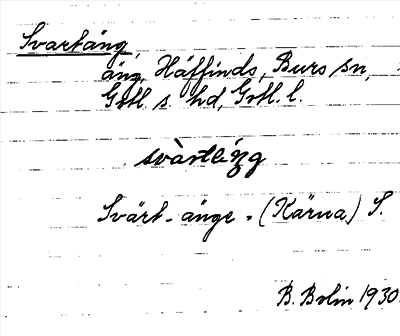 Svartäng,
äng, Häffinds, Burs sn,
Gotl. s. hd, Gotl. l.
svàrtl
Svärt-änge - (Kärna) S.
B. Bolin 1930.